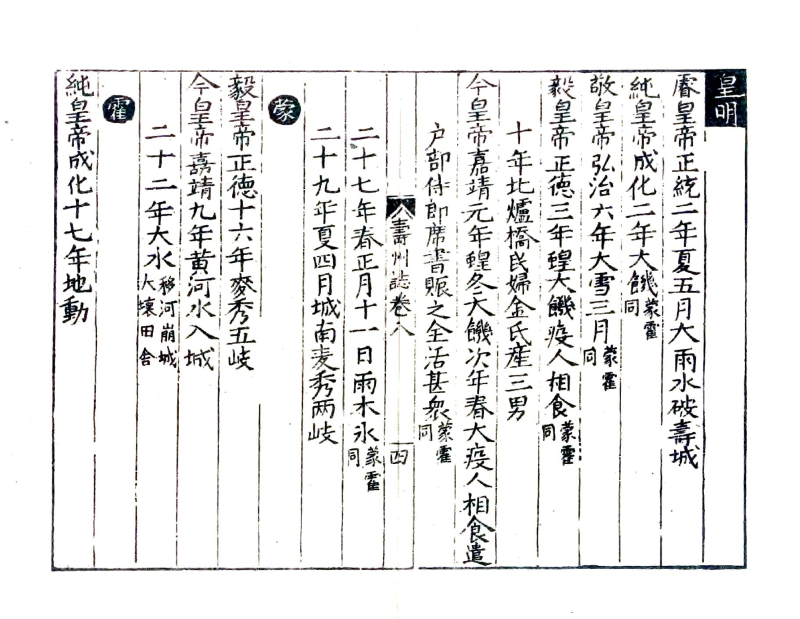 皇明
睿皇帝正統二年夏五月大雨水破壽城
純皇帝成化二年大饑蒙霍同
敬皇帝弘治六年大雪三月蒙霍同
毅皇帝正德三年蝗大饑疫人相食蒙霍同
十年北爐橋民婦金氏產三男
今皇帝嘉靖元年蝗冬大饑次年春大疫人相食遣
戶部侍郎席書賑之全活甚衆蒙霍同
壽州誌卷八 四
二十七年春正月十一日雨木氷蒙霍同
二十九年夏四月城南麦秀两岐
蒙
毅皇帝正德十六年麥秀五岐
今皇帝嘉靖九年黄河水入城
二十二年大水移河崩城大壞田舍
霍
純皇帝成化十七年地動